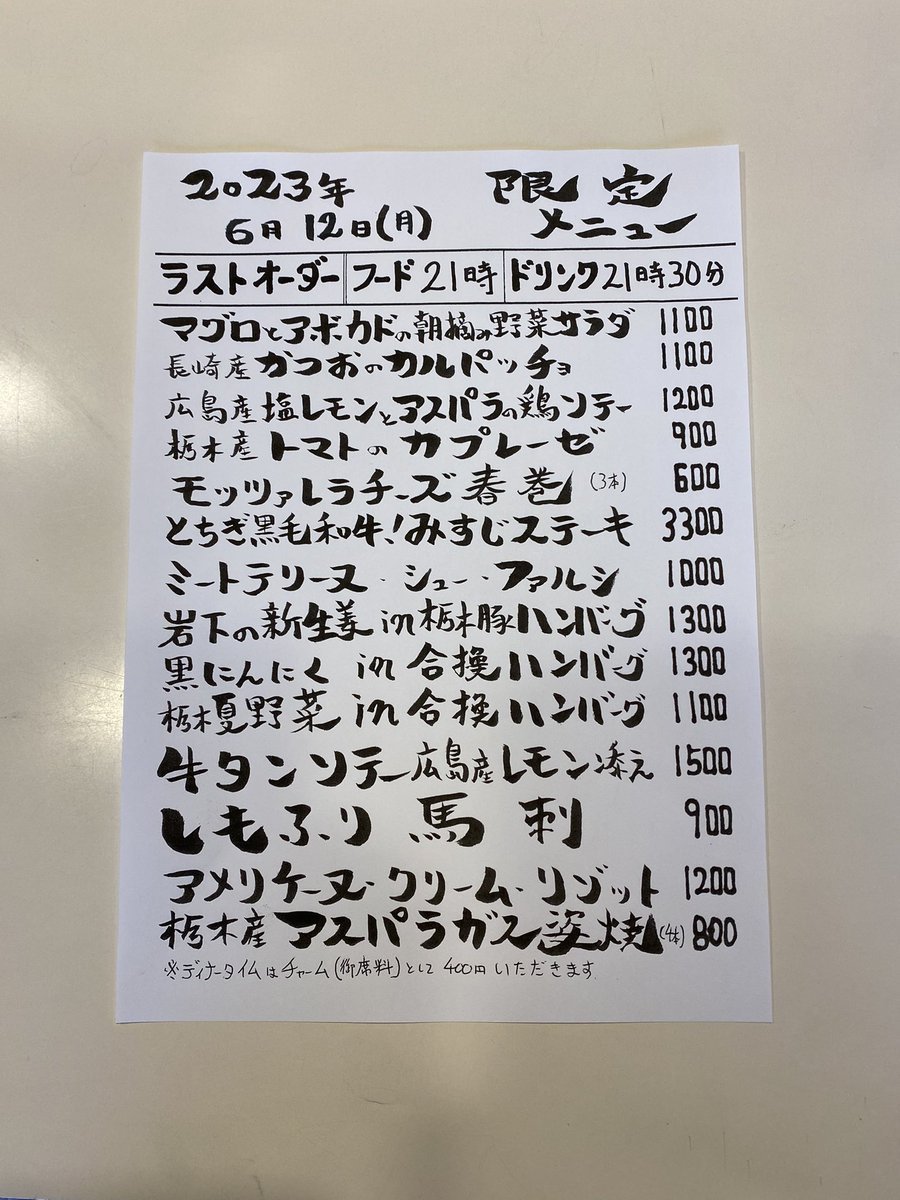 2023年 限定
6月12日(月) メニュー
ラストオーダー フード21時 ドリンク21時30分
マグロとアボカドの朝摘み野菜サラダ 1100
長崎産かつおのカルパッチョ 1100
広島産塩レモンとアスパラの鶏ソテー 1200
栃木産トマトのカプレーゼ 900
モッツァレラチーズ春巻(3本) 600
とちぎ黒毛和牛!みすじステーキ 3300
ミートテリーヌ・シュー・ファルシ 1000
岩下の新生姜in栃木豚ハンバーグ 1300
黒にんにくin合挽ハンバーグ 1300
栃木夏野菜in合挽ハンバーグ 1100
牛タンソテー広島産レモン添え 1500
しもふり馬刺 900
アメリケーヌ・クリーム・リゾット 1200
栃木産アスパラガス姿焼(4本) 800
※ディナータイムはチャーム(御席料)として400円いただきます。